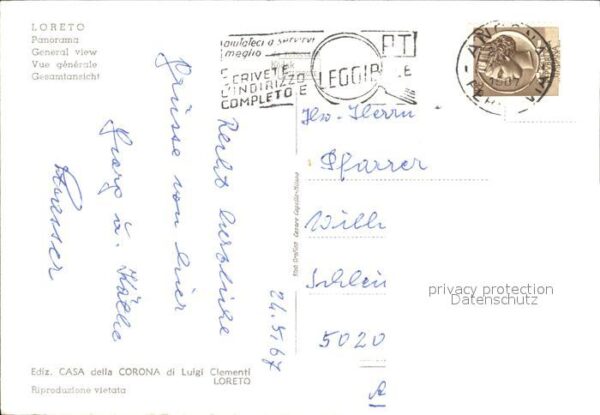 LORETO
Panorama
General view
Vue générale
Gesamtansicht
aiutateci a servirvi
meglio
SCRIVETE
L'INDIRIZZO
COMPLETO E
LEGGIBILE
PT
ANCONA
1967
FERROVIA
Recht herzliche
Grüsse von hier
Georg u. Käthe
24.5.67
Hw. Herrn
Pfarrer
Willi
Schlei
5020
A
privacy protection
Datenschutz
Ediz. CASA della CORONA di Luigi Clementi
LORETO
Riproduzione vietata